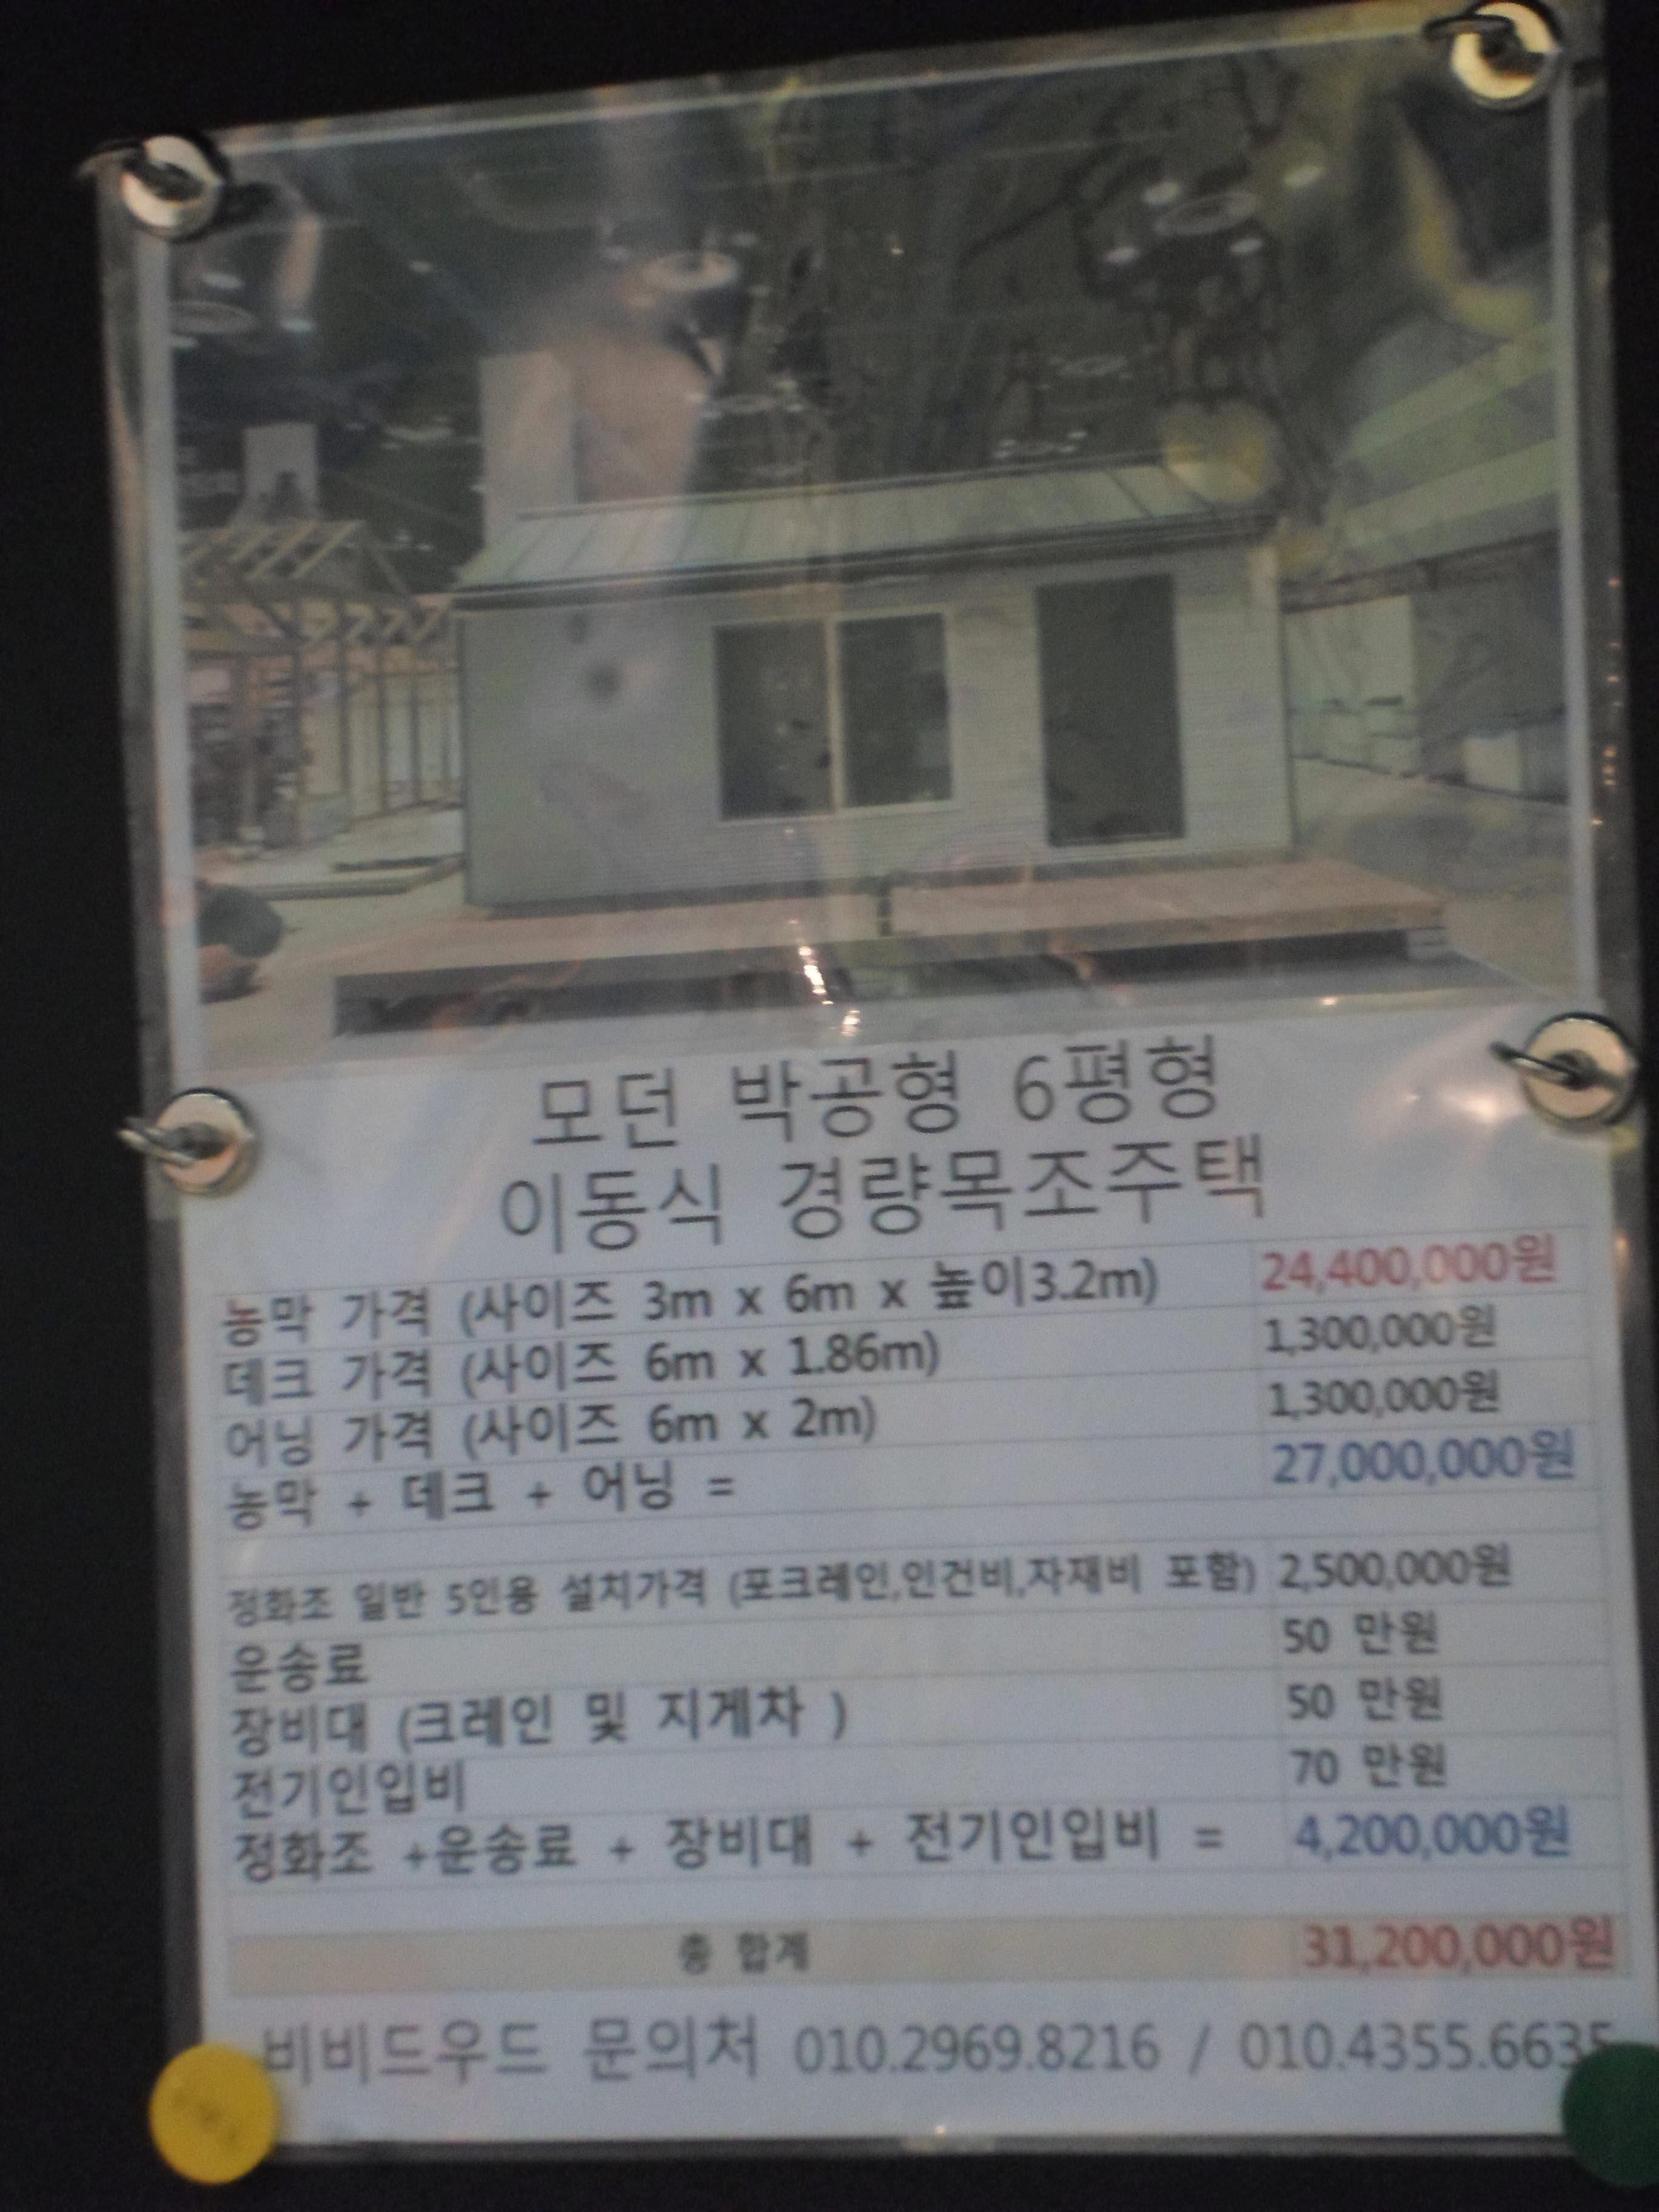 모던 박공형 6평형
이동식 경량목조주택
농막 가격 (사이즈 3m x 6m x 높이3.2m) 24,400,000원
데크 가격 (사이즈 6m x 1.86m) 1,300,000원
어닝 가격 (사이즈 6m x 2m) 1,300,000원
농막 + 데크 + 어닝 = 27,000,000원
정화조 일반 5인용 설치가격 (포크레인,인건비,자재비 포함) 2,500,000원
운송료 50 만원
장비대 (크레인 및 지게차 ) 50 만원
전기인입비 70 만원
정화조 +운송료 + 장비대 + 전기인입비 = 4,200,000원
총 합계 31,200,000원
비비드우드 문의처 010.2969.8216 / 010.4355.6635